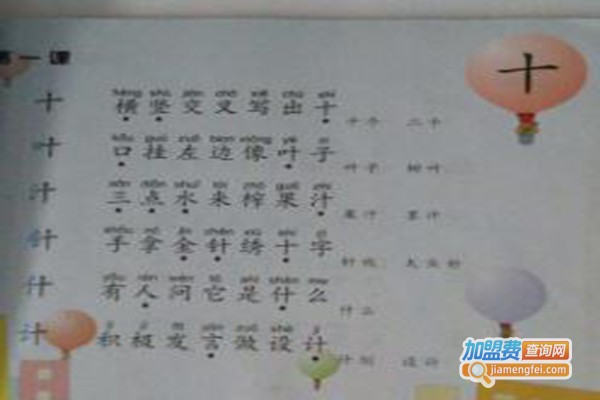 第一课
十
十 横竖交叉写出十 十个 二十
叶 口挂左边像叶子 叶子 树叶
汁 三点水来榨果汁 果汁 墨汁
针 手拿金针绣十字 针线
什 有人问它是什么 什么
计 积极发言做设计 计划 设计
加盟费查询网
jiamengfei.com